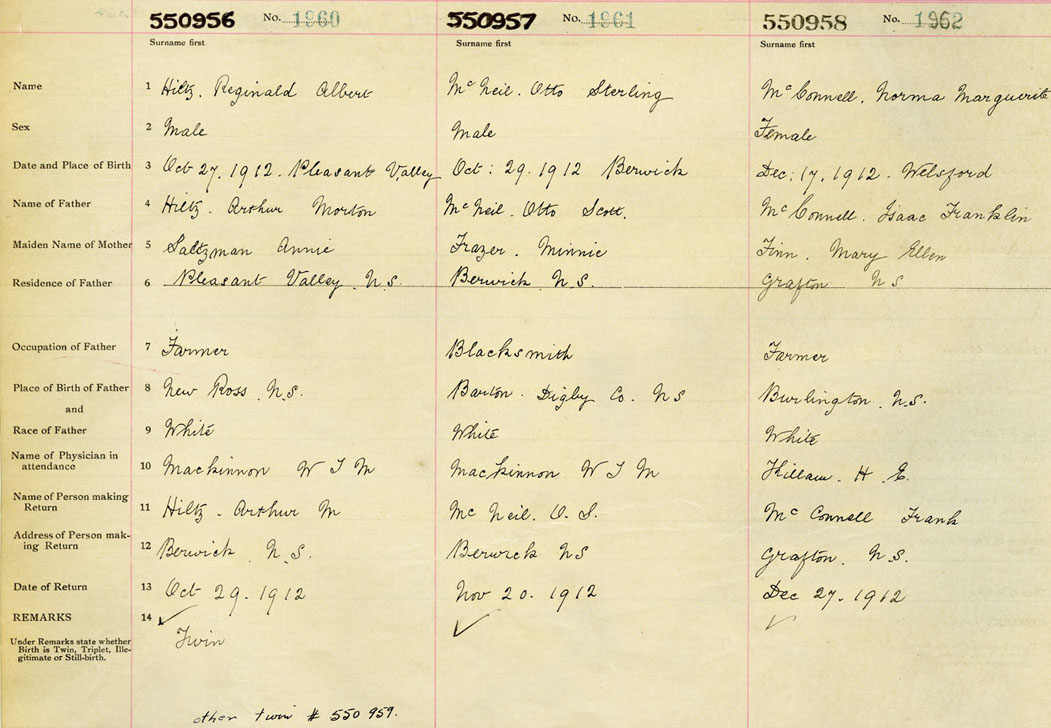 550956 No. 1960 550957 No. 1961 550958 No. 1962
Surname first Surname first Surname first
Name 1 Hiltz. Reginald Albert McNeil. Otto Sterling McConnell. Norma Marguerite
Sex 2 Male Male Female
Date and Place of Birth 3 Oct 27. 1912. Pleasant Valley Oct: 29. 1912 Berwick Dec: 17. 1912. Welsford
Name of Father 4 Hiltz. Arthur Morton McNeil. Otto Scott. McConnell. Isaac Franklin
Maiden Name of Mother 5 Saltzman Annie Frazer. Minnie Finn. Mary Ellen
Residence of Father 6 Pleasant Valley. N.S. Berwick N.S. Grafton N S
Occupation of Father 7 Farmer Blacksmith Farmer
Place of Birth of Father 8 New Ross. N.S. Barton. Digby Co. N S Burlington. N.S.
and
Race of Father 9 White White White
Name of Physician in
attendance 10 Mackinnon W J M Mackinnon W J M Killam. H E.
Name of Person making
Return 11 Hiltz. Arthur M McNeil. O. S. McConnell Frank
Address of Person mak-
ing Return 12 Berwick N.S. Berwick NS Grafton. N.S.
Date of Return 13 Oct 29. 1912 Nov 20. 1912 Dec 27. 1912
REMARKS 14 ✓ ✓ ✓
Under Remarks state whether
Birth is Twin, Triplet, Ille-
gitimate or Still-birth.
Twin
other twin # 550 959.